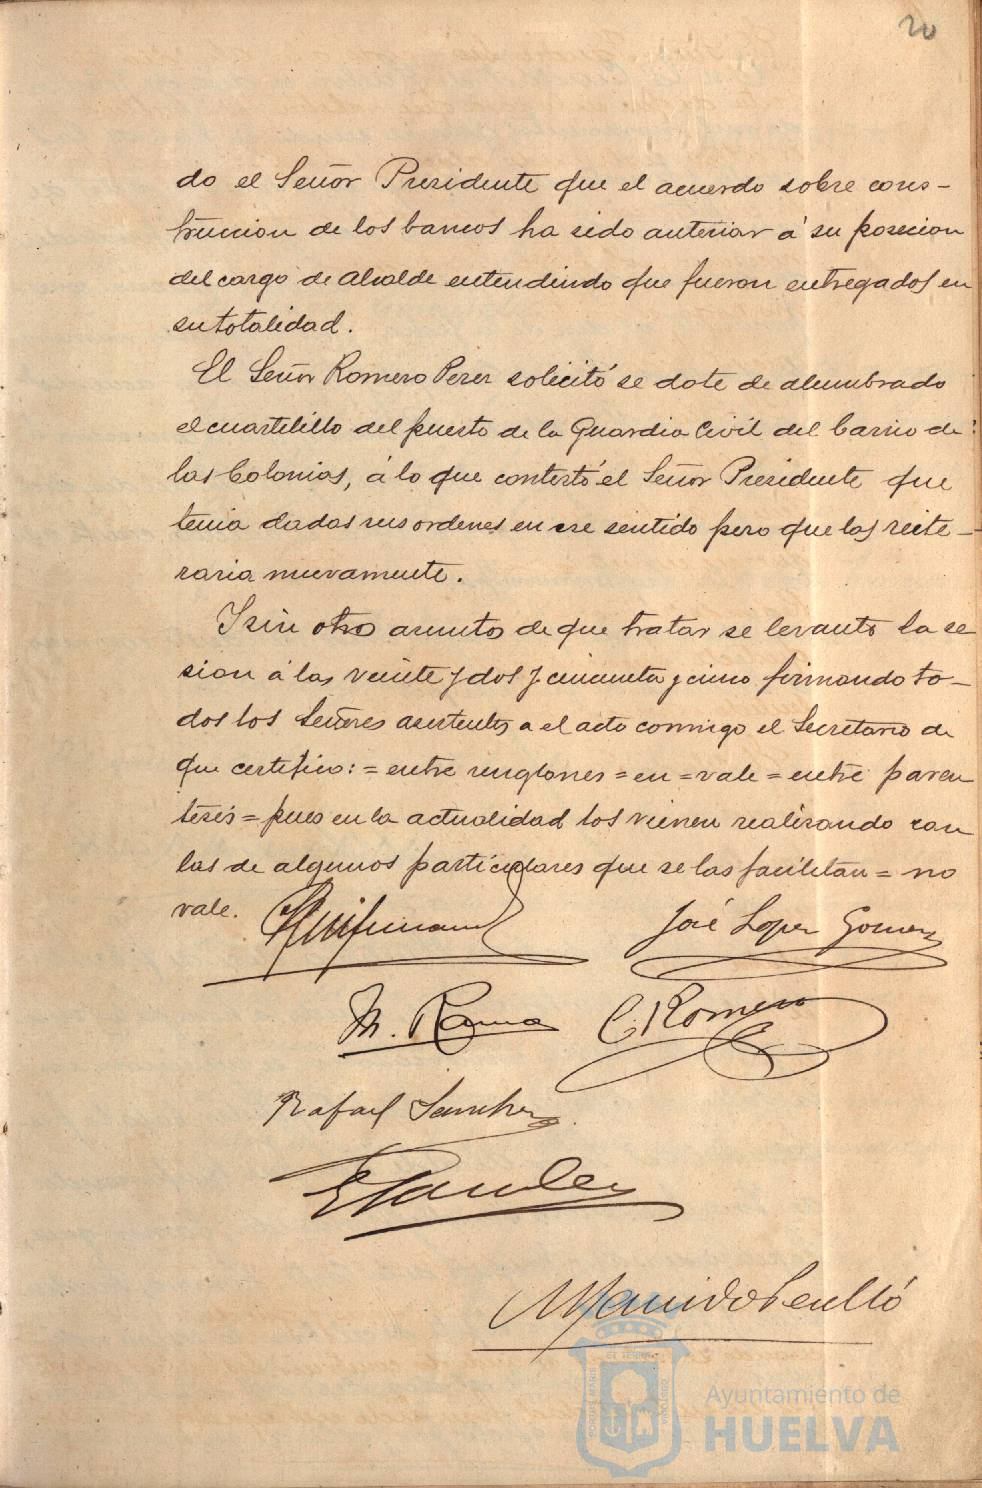 20
do el Señor Presidente que el acuerdo sobre cons-
truccion de los bancos ha sido anterior á su posecion
del cargo de Alcalde entendiendo que fueron entregados en
su totalidad.
El Señor Romero Perez solicitó se dote de alumbrado
el cuartelillo del puesto de la Guardia Civil del barrio de
las Colonias, á lo que contestó el Señor Presidente que
tenia dadas sus ordenes en ese sentido pero que las reite-
raria nuevamente.
Y sin otro asuntos de que tratar se levanto la se
sion á las veinte y dos y cincuenta y cinco firmando to-
dos los Señores asistentes a el acto conmigo el Secretario de
que certifico: = entre renglones = en = vale = entre paren
tesis = pues en la actualidad los vienen realizando con
las de algunos particulares que se las facilitan = no
vale.
José Lopez Gomez
C. Romero
Rafael Sanchez
Ayuntamiento de
HUELVA